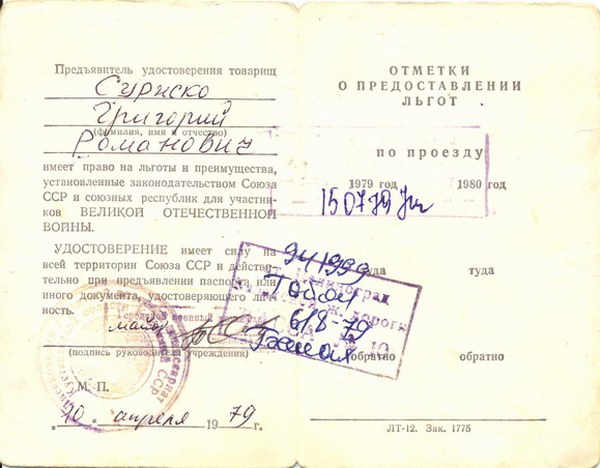 Предъявитель удостоверения товарищ
Сурнско
Григорий
(фамилия, имя и отчество)
Романович
имеет право на льготы и преимущества,
установленные законодательством Союза
ССР и союзных республик для участни-
ков ВЕЛИКОЙ ОТЕЧЕСТВЕННОЙ
ВОЙНЫ.
УДОСТОВЕРЕНИЕ имеет силу на
всей территории Союза ССР и действи-
тельно при предъявлении паспорта или
иного документа, удостоверяющего лич-
ность.
майор
(подпись руководителя учреждения)
М. П.
10 апреля 1979 г.
ОТМЕТКИ
О ПРЕДОСТАВЛЕНИИ
ЛЬГОТ
по проезду
1979 год 1980 год
150779
941999
туда туда
Тобол
ж. дороги
6/8-79
обратно обратно
ЛТ-12. Зак. 1775